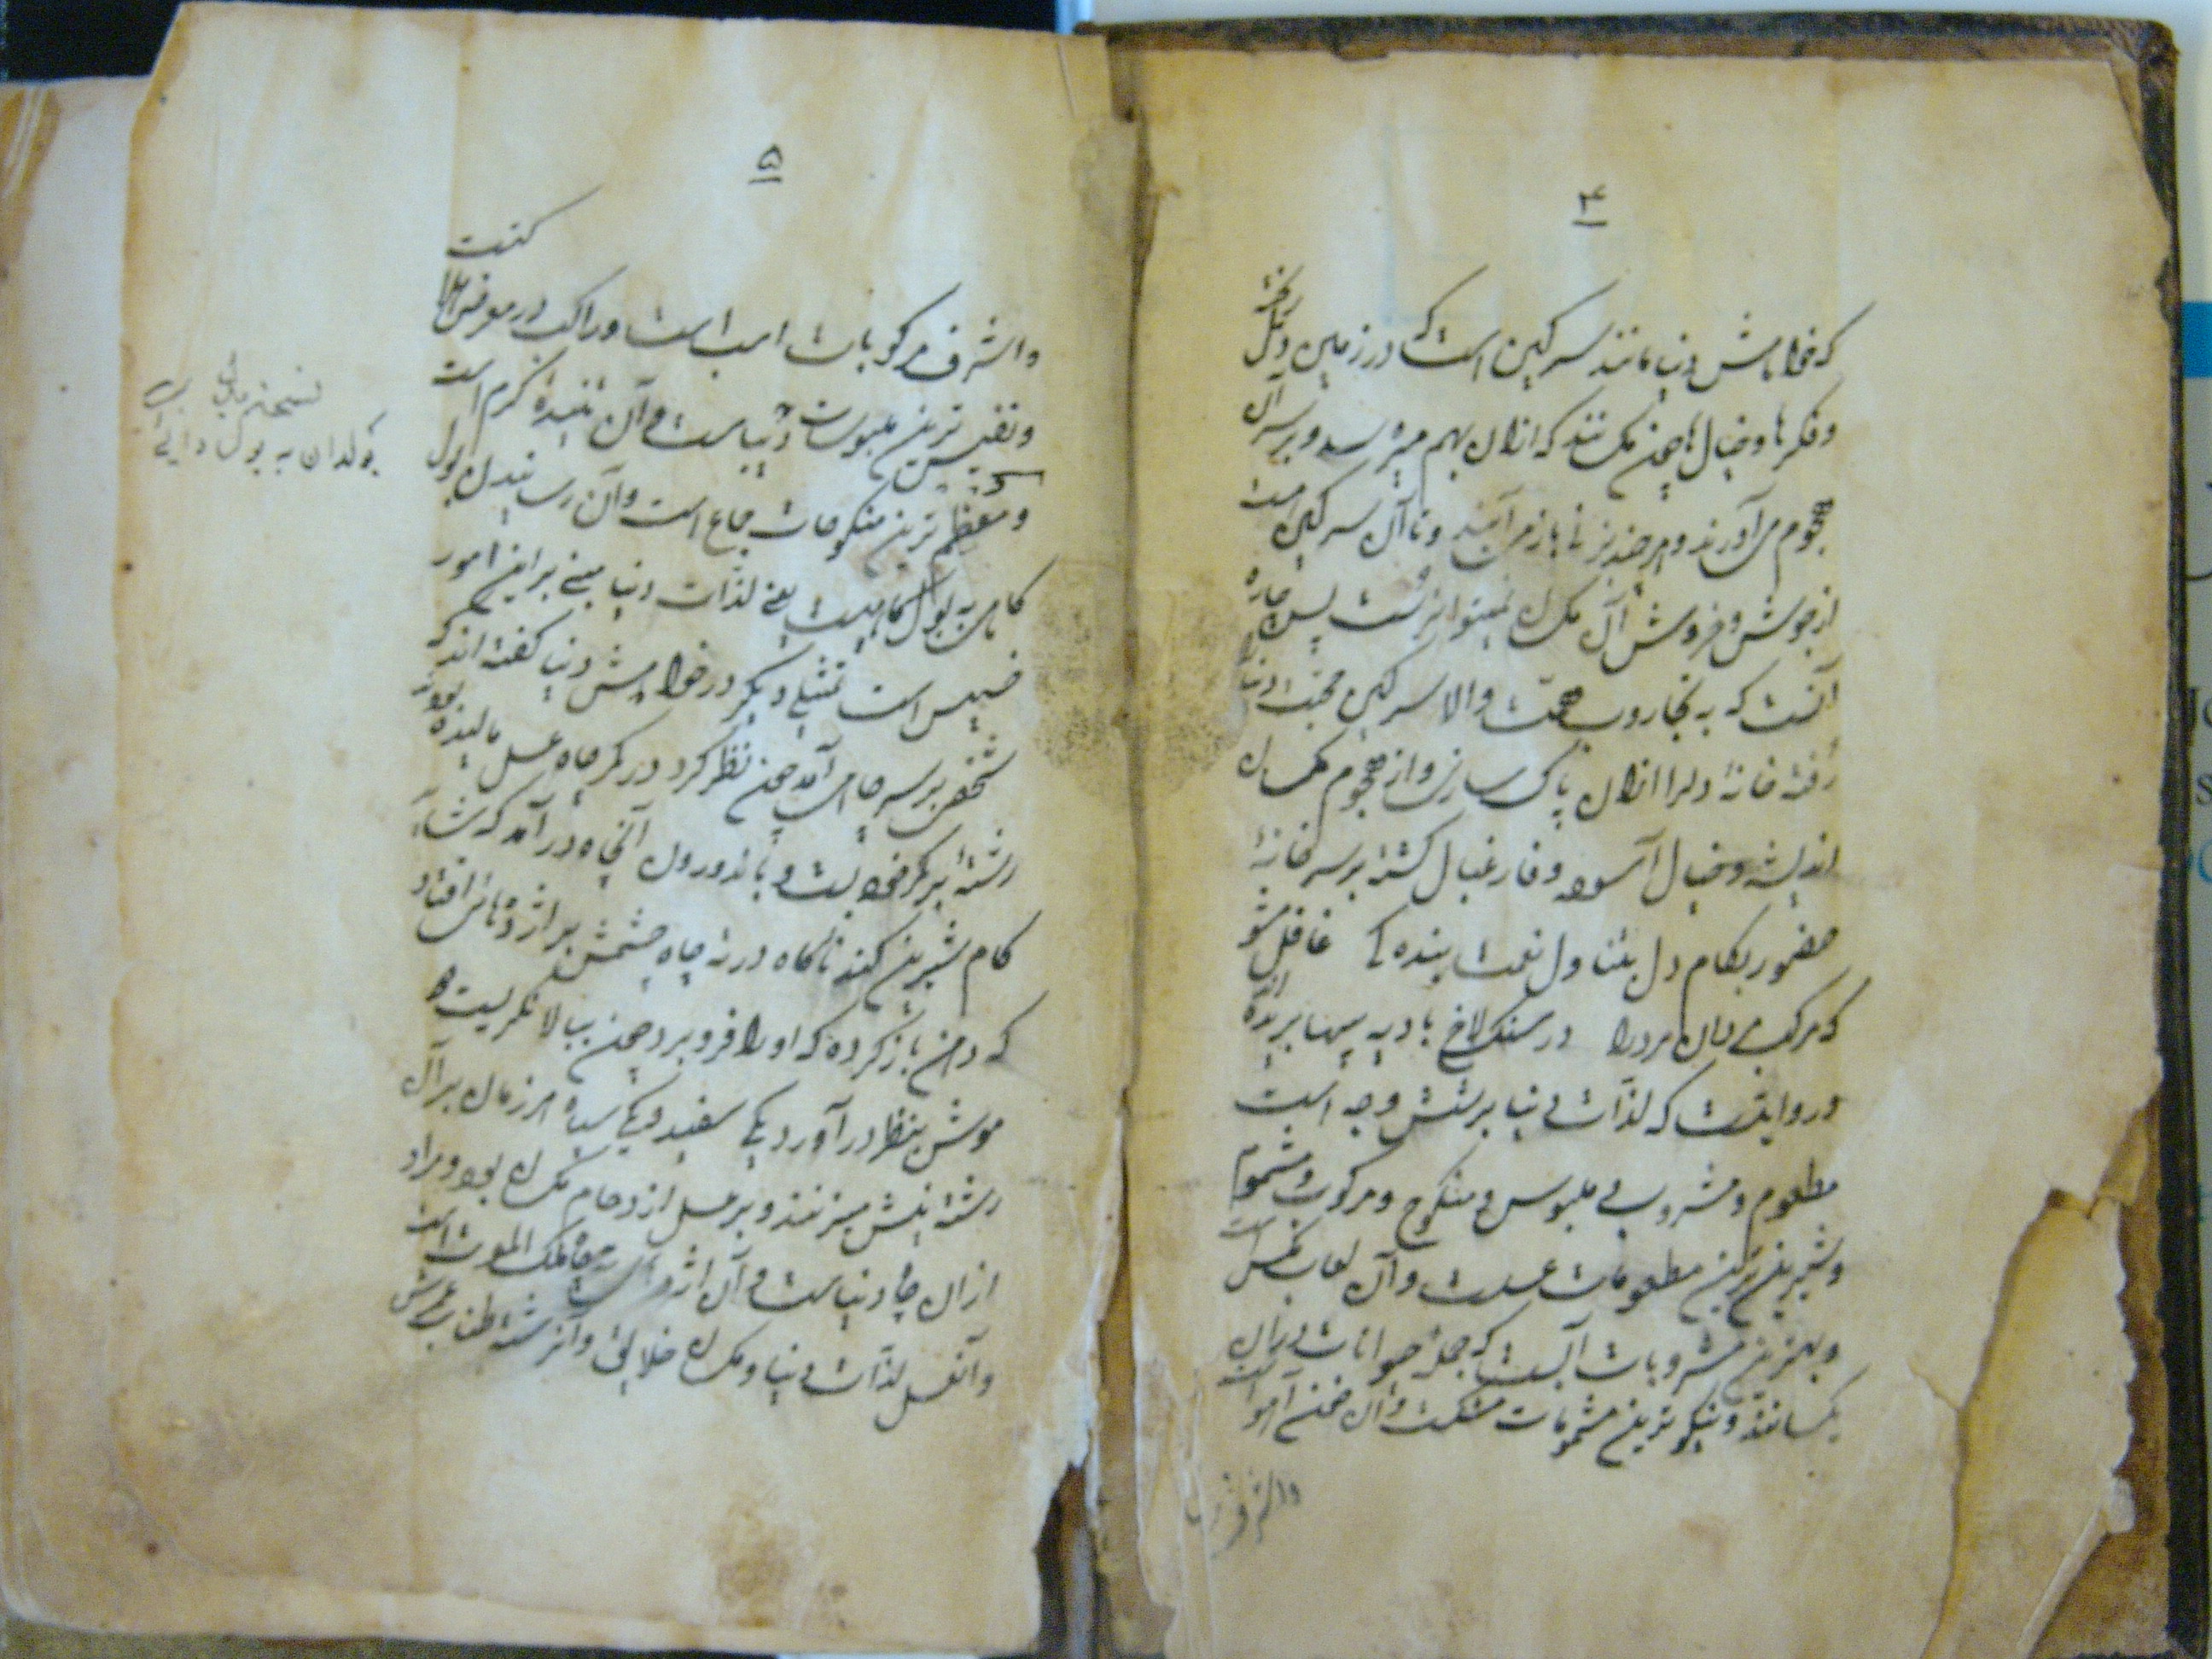 ۴
که خواهش دنیا مانند سرکین است که در زمین دل ریخته
و فکرها و خیال‌ها چون مکسانند که ازان بهم میرسد و بر سر آن
هجوم می‌آورند و هر چند برانی باز می‌آیند و تا آن سرکین است
از جوش و خروش آن مکسان نمیتوان رست پس چاره
آنست که به بجاروب همت والا سرکین محبت دنیا
رفته خانهٔ دلرا ازان پاک سازی و از هجوم مکسان
اندیشه و خیال آسوده و فارغبال کشته بر سر خانهٔ
حضور بکام دل بتناول نعمت بنده کی غافل مشو
که مرکب مردان مرد را در سنکلاخ بادیه پیها بریده اند
و روایتست که لذات دنیا بر شش وجه است
مطعوم و مشروب و ملبوس و منکوح و مرکوب و مشموم
و شیرین ترین مطعومات عسلست و آن لعاب مکس است
و بهترین مشروبات آبست که جمله حیوانات در آن
یکسانند و نیکوترین مشمومات مشکست و آن خون آهو است
و اشرف
۵
و اشرف مرکوبات اسب است و راکب در معرض هلاکتست
و نفیس ترین ملبوسات دیباست و آن تنیدهٔ کرم است
و معظم ترین منکوحات جماع است و آن رسانیدن بول
کاهی به بول کاهیست یعنی لذات دنیا مبنی براین امور
خسیس است تمثیلی دیکر در خواهش دنیا کفته اند که
شخصی بر سر چاهی آمد چون نظر کرد در کمر چاه عسل مالیده بود
رشته بر کمر خود بست و باندرون آنچاه در آمد که شاید
کام شیرین کند ناکاه در ته چاه چشمش بر اژدهائی افتاد
که دهن باز کرده که او را فرو برد چون ببالا نکریست دو
موش بنظر در آورد یکی سفید و یکی سیاه هر زمان بر آن
رشته نیش میزنند و بر عسل ازدحام مکسان بود و مراد
ازان چاه دنیاست و آن اژدها ملک الموت است
و آنعسل لذات دنیا و مکسان خلایق و آنرشته طناب عمرش
نسخه بدل
بولدان به بولدانی است